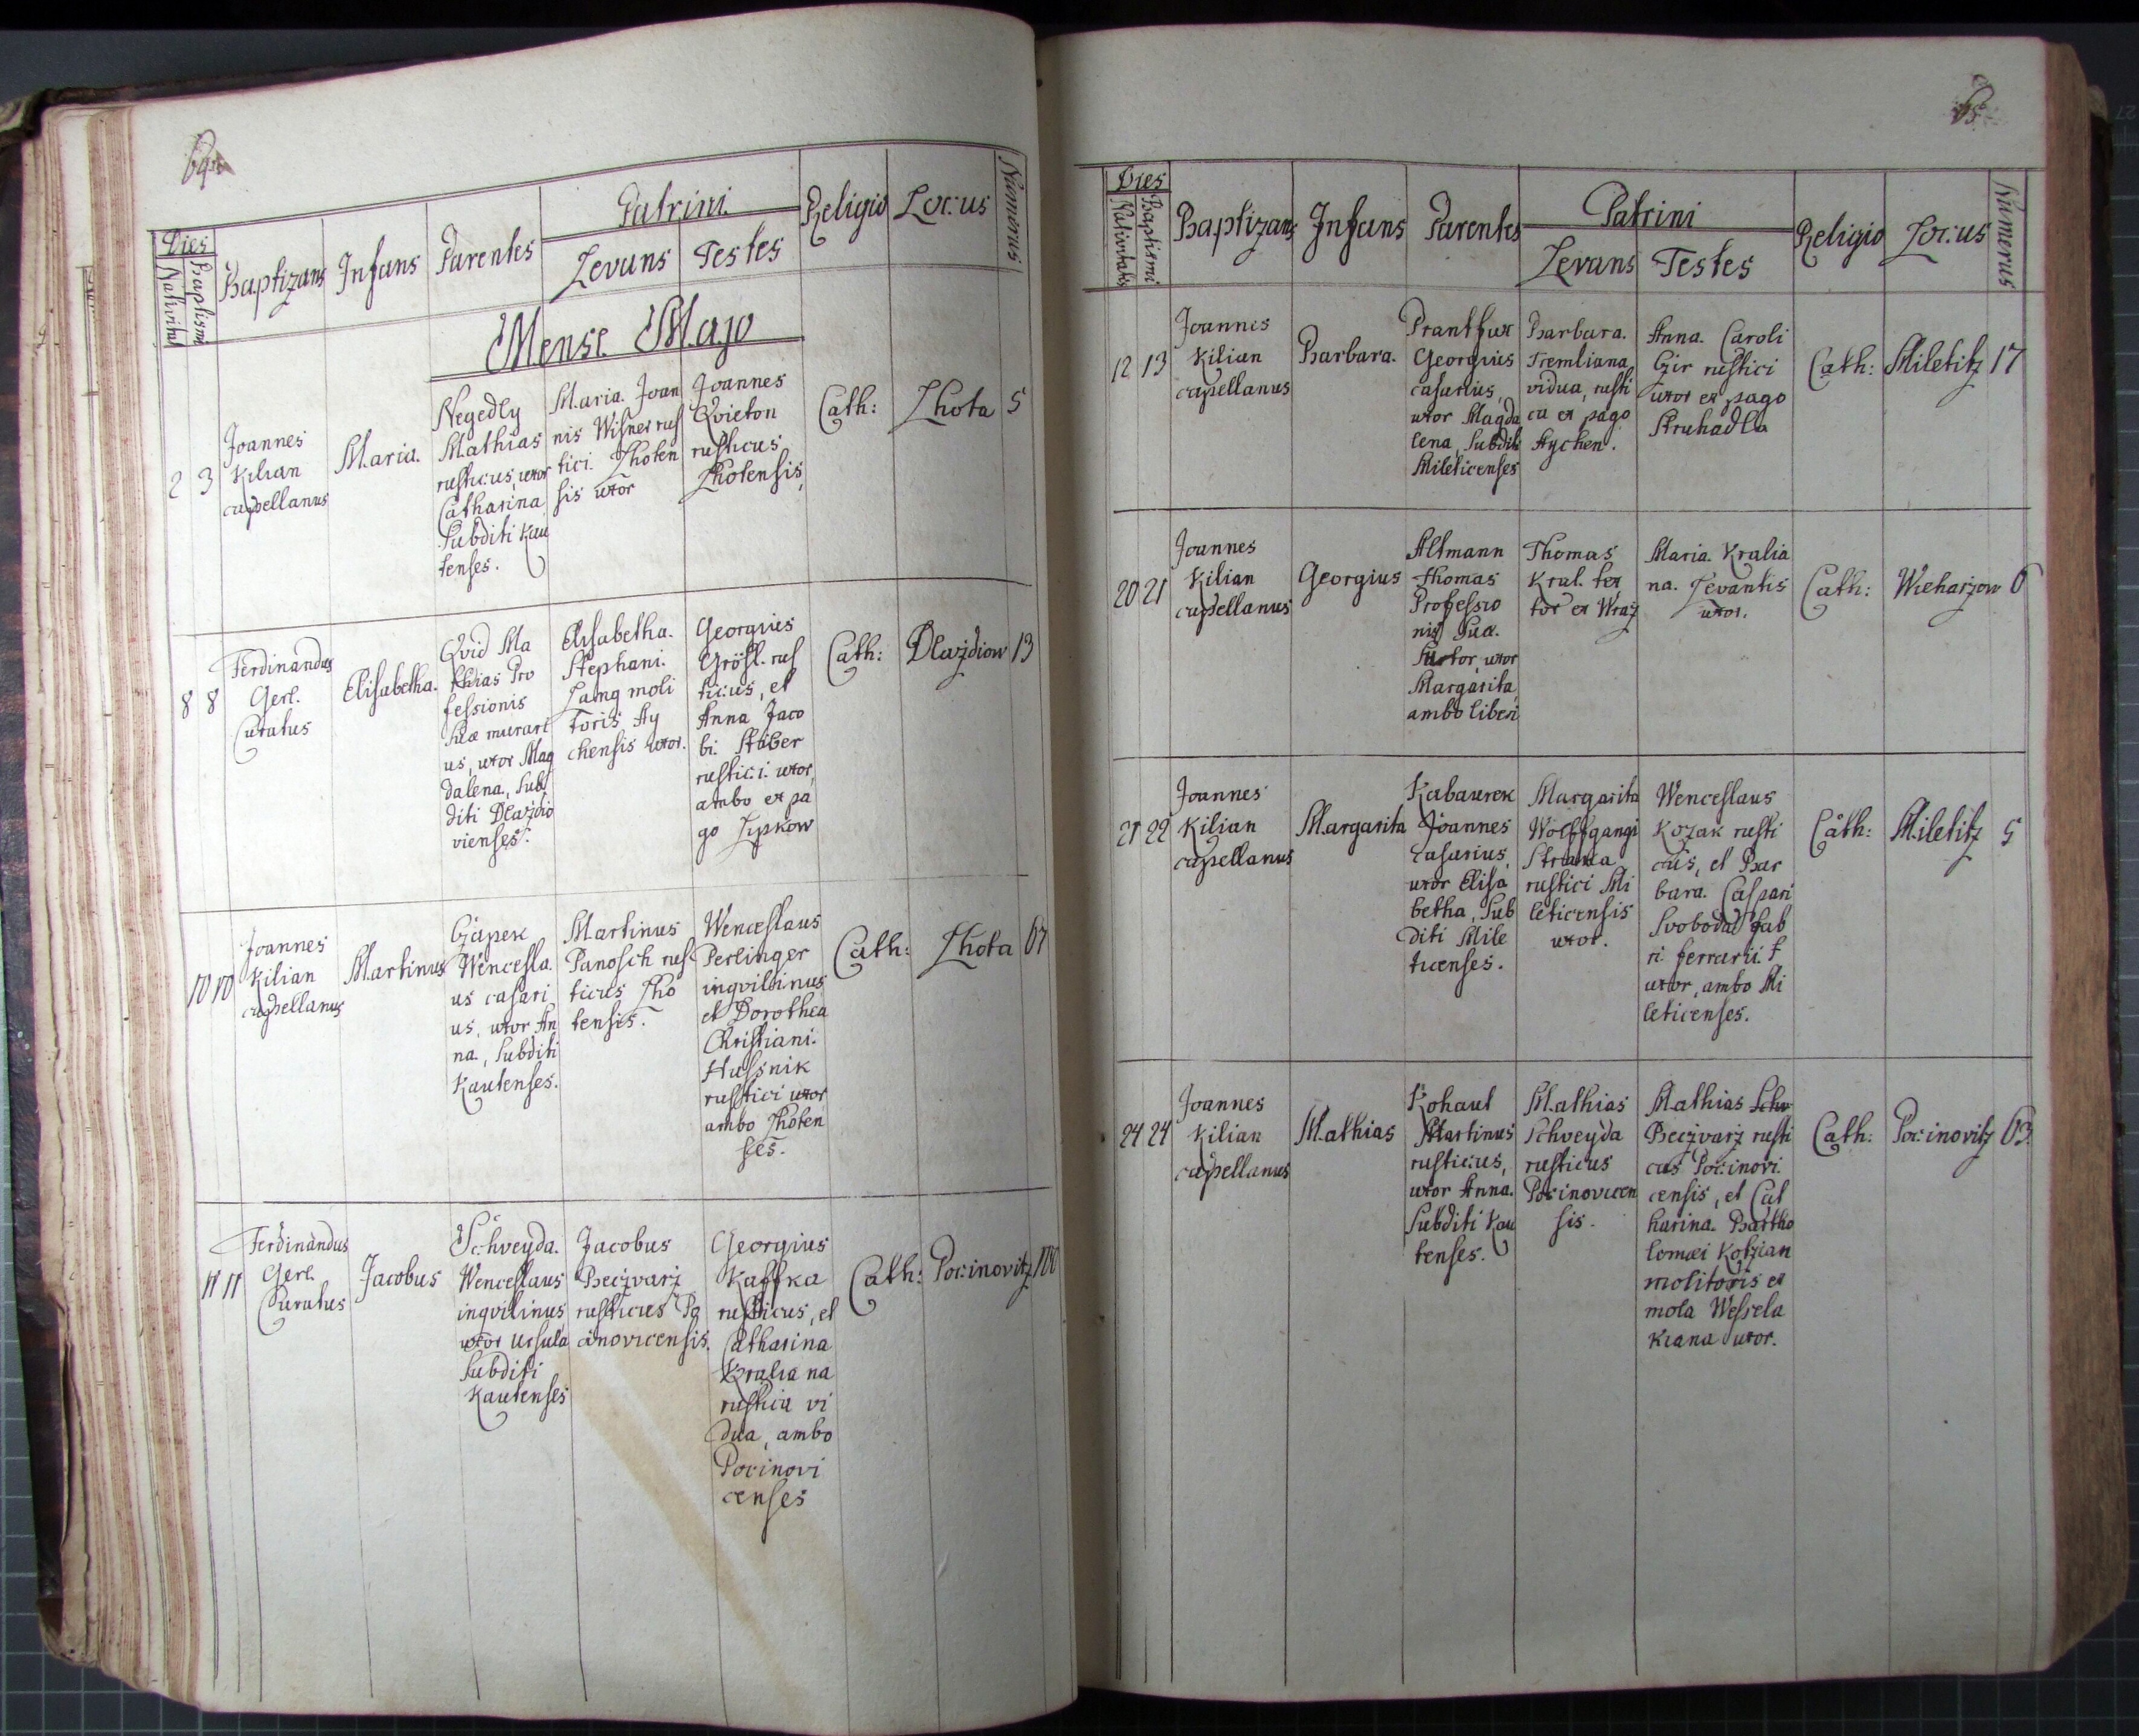 64
Dies
Nativitat
Baptismi
Baptizans
Infans
Parentes
Patrini
Levans
Testes
Religio
Locus
Numerus
Mense Majo
2
3
Joannes
Kilian
capellanus
Maria.
Negedly
Mathias
rusticus, uxor
Catharina
Subditi Kau
tenses.
Maria. Joan
nis Wisner rus
tici. Lhoten
sis uxor
Joannes
Qvieton
rusticus
Lhotensis,
Cath:
Lhota
5
8
8
Ferdinandus
Gerl.
Curatus
Elisabetha.
Qvid Ma
thias Pro
fessionis
suæ murari
us, uxor Mag
dalena, Sub
diti Dlazdio
vienses.
Elisabetha.
Stephani.
Lang moli
toris Ay
chensis uxor.
Georgius
Grösl. rus
ticus, et
Anna Jaco
bi. Stöber
rustici. uxor,
ambo ex pa
go Lipkow
Cath:
Dlazdiow
13
10
10
Joannes
Kilian
capellanus
Martinus
Cžapek
Wencesla.
us casari
us, uxor An
na., Subditi
Kautenses.
Martinus
Panosch rus
ticus Lho
tensis.
Wenceslaus
Perlinger
inqvilinus
et Dorothea
Christiani.
Hussnik
rustici uxor
ambo Lhoten
ses.
Cath:
Lhota
67
11
11
Ferdinandus
Gerl.
Curatus
Jacobus
Schveyda.
Wenceslaus
inqvilinus
uxor Ursula
Subditi
Kautenses
Jacobus
Beczvarz
rusticus Po
cinovicensis.
Georgius
Kaffka
rusticus, et
Catharina
Kraliana
rustica vi
dua, ambo
Pocinovi
censes
Cath:
Pocinovitz
100
65
Dies
Nativitatis
Baptismi
Baptizans
Infans
Parentes
Patrini
Levans
Testes
Religio
Locus
Numerus
12
13
Joannes
Kilian
capellanus
Barbara.
Prantfux
Georgius
casarius,
uxor Magda
lena, Subditi
Mileticenses
Barbara.
Tremliana
vidua, rusti
ca ex pago
Aychen.
Anna. Caroli
Gir rustici
uxor ex pago
Struhadla
Cath:
Miletitz
17
20
21
Joannes
Kilian
capellanus
Georgius
Altmann
Thomas
Professio
nis Suæ.
Sutor, uxor
Margarita,
ambo liberi
Thomas
Kral. tex
tor ex Wraz
Maria. Kralia
na. Levantis
uxor.
Cath:
Wieharzow
6
21
22
Joannes
Kilian
capellanus
Margarita
Kabaurek
Joannes
casarius,
uxor Elisa
betha, Sub
diti Mile
ticenses.
Margarita
Wolffgangi
Straka
rustici Mi
leticensis
uxor.
Wenceslaus
Kozak rusti
cus, et Bar
bara. Caspari
Svoboda fab
ri ferrarii.
uxor, ambo Mi
leticenses.
Cath:
Miletitz
5
24
24
Joannes
Kilian
capellanus
Mathias
Kohaut
Martinus
rusticus,
uxor Anna.
Subditi Kau
tenses.
Mathias
Schveyda
rusticus
Pocinovicen
sis.
Mathias Schv
Beczvarz rusti
cus Pocinovi.
censis, et Cat
harina. Bartho
lomæi Kotzian
molitoris ex
mola Wessela
kiana uxor.
Cath:
Pocinovitz
63